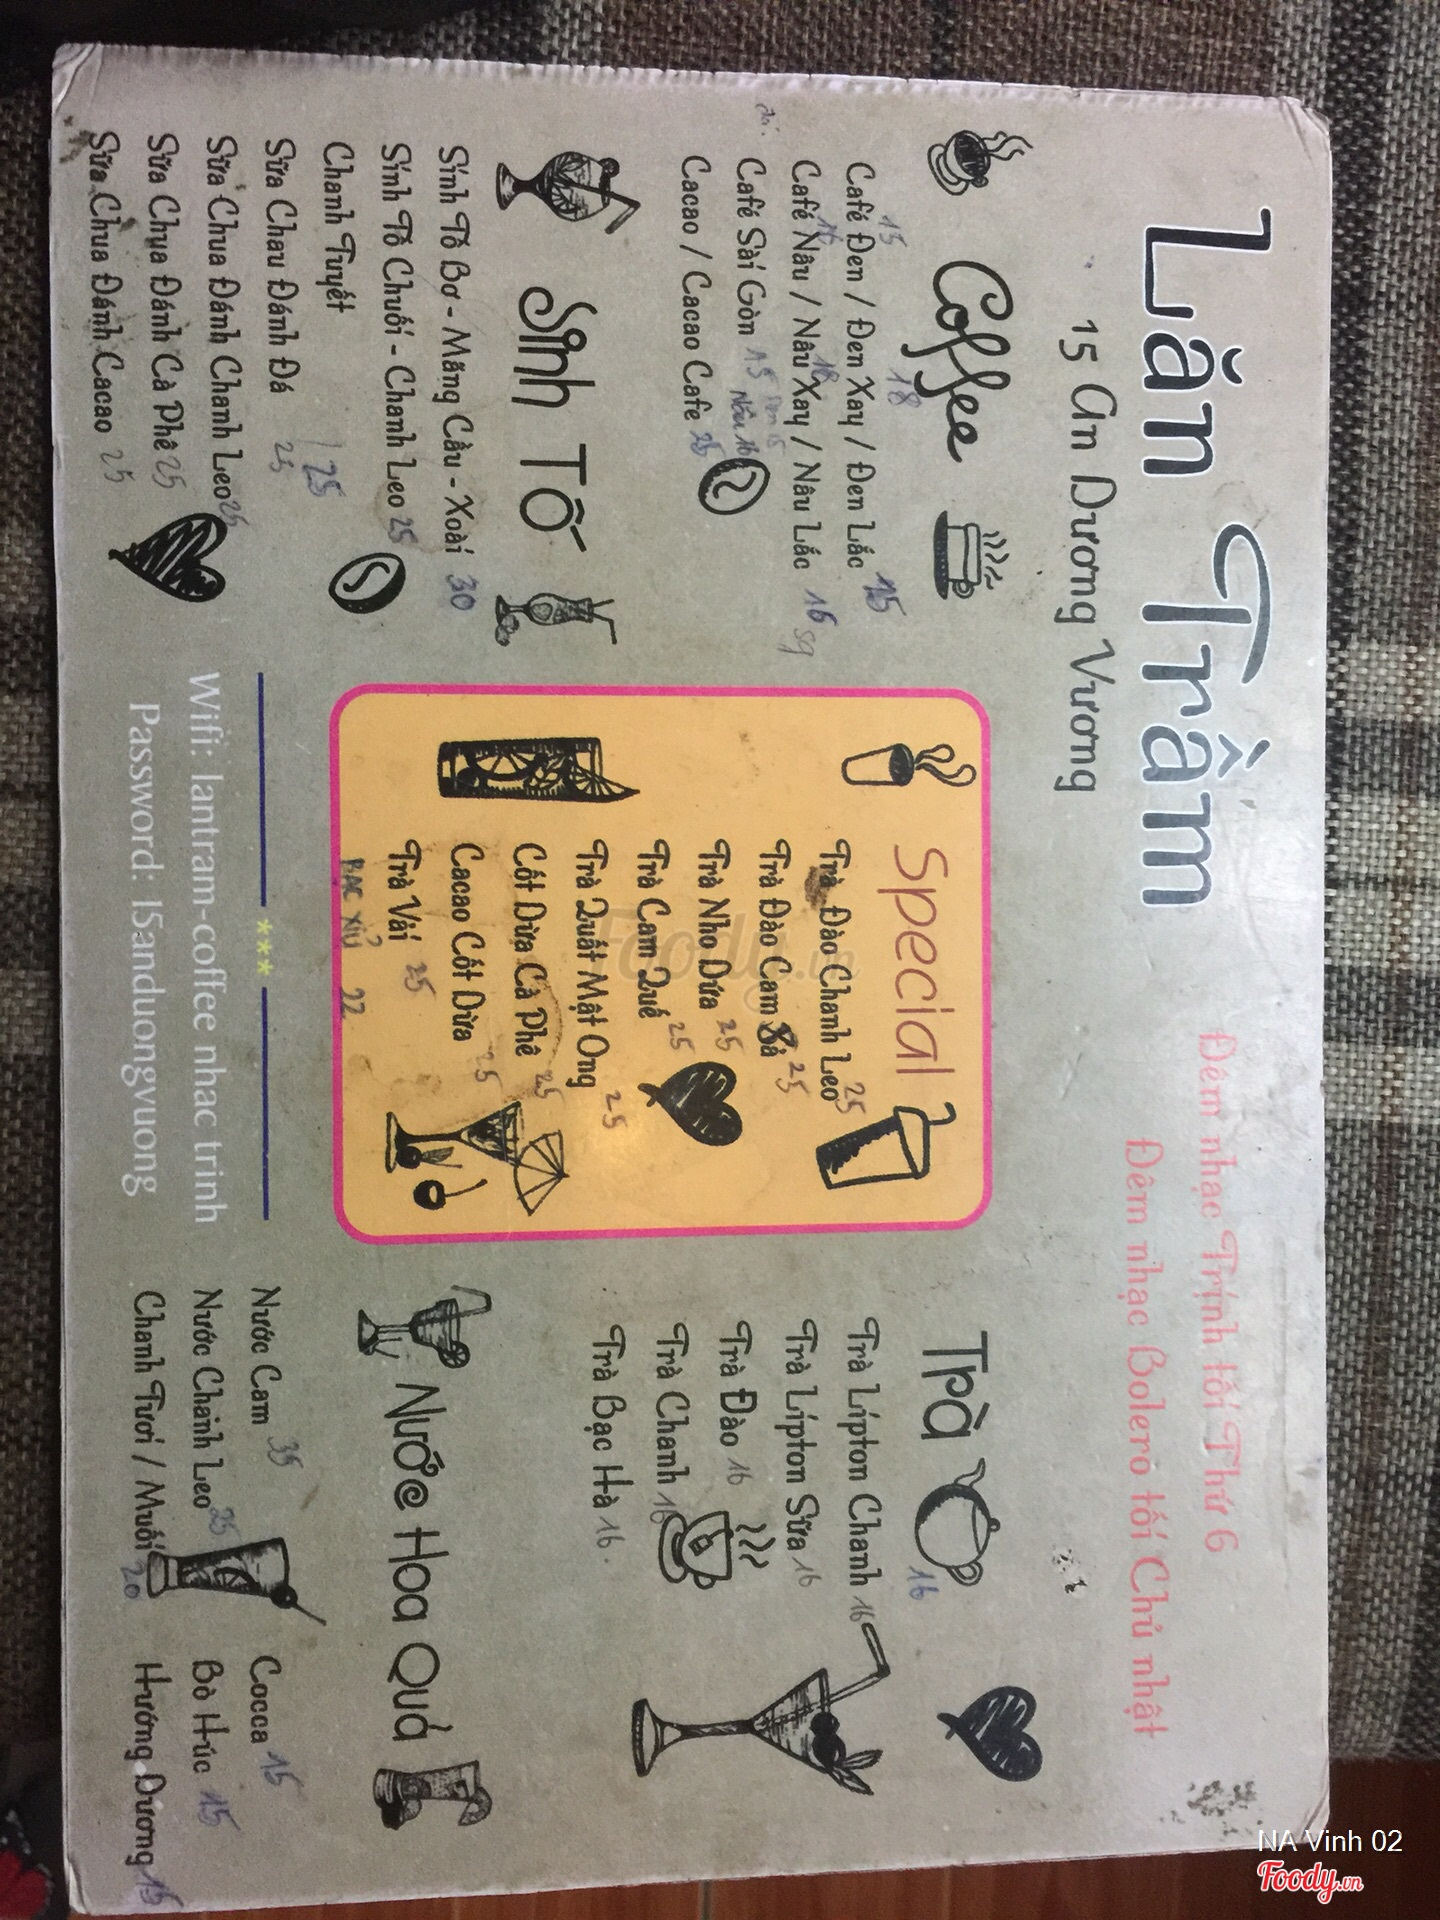 Lăn Trầm
15 An Dương Vương
Đêm nhạc Trịnh tối Thứ 6
Đêm nhạc Bolero tối Chủ nhật
Coffee
15 18
Café Đen / Đen Xay / Đen Lắc 15
16 18
Café Nâu / Nâu Xay / Nâu Lắc 16
Café Sài Gòn 15
Nâu 16
Cacao / Cacao Cafe 25
Sinh Tố
Sinh Tố Bơ - Mãng Cầu - Xoài 30
Sinh Tố Chuối - Chanh Leo 25
Chanh Tuyết 25
Sữa Chau Đánh Đá 25
Sữa Chua Đánh Chanh Leo 25
Sữa Chua Đánh Cà Phê 25
Sữa Chua Đánh Cacao 25
Special
Trà Đào Chanh Leo 25
Trà Đào Cam Sả 25
Trà Nho Dứa 25
Trà Cam Quế 25
Trà Quất Mật Ong 25
Cốt Dừa Cà Phê 25
Cacao Cốt Dừa 25
Trà Vải 25
BẠC XỈU 22
***
Wifi: lantram-coffee nhac trinh
Password: 15anduongvuong
Trà 16
Trà Lípton Chanh 16
Trà Lípton Sữa 16
Trà Đào 16
Trà Chanh 16
Trà Bạc Hà 16
Nước Hoa Quả
Nước Cam 35
Nước Chanh Leo 25
Chanh Tươi / Muối 20
Cocca 15
Bò Húc 15
Hướng Dương 15
Foody.vn
NA Vinh 02
Foody.vn